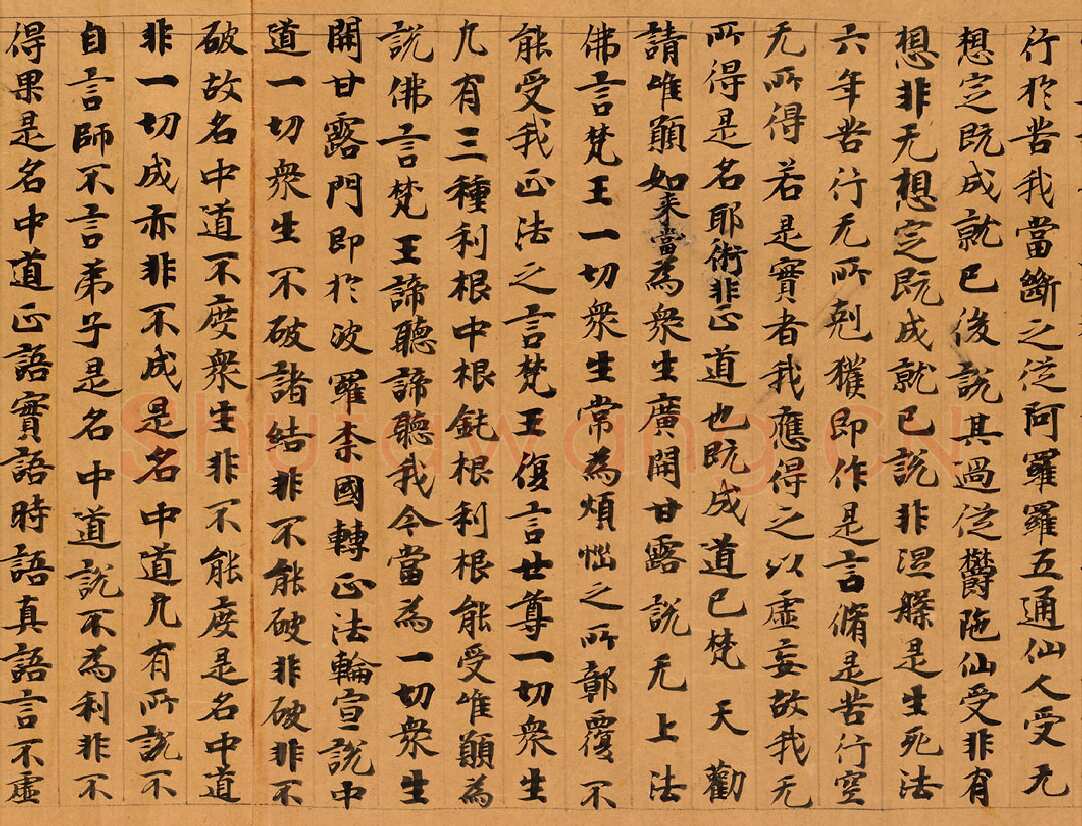 行於苦我當斷之從阿羅羅五通仙人受无
想定既成就已後說其過從欝陁仙受非有
想非无想定既成就已說非涅槃是生死法
六年苦行无所剋獲即作是言脩是苦行空
无所得若是實者我應得之以虛妄故我无
所得是名耶術非正道也既成道已梵天勸
請唯願如来當為衆生廣開甘露說无上法
佛言梵王一切衆生常為煩惱之所鄣覆不
能受我正法之言梵王復言世尊一切衆生
凡有三種利根中根鈍根利根能受唯願為
說佛言梵王諦聽諦聽我今當為一切衆生
開甘露門即於波羅柰國轉正法輪宣說中
道一切衆生不破諸結非不能破非破非不
破故名中道不度衆生非不能度是名中道
非一切成亦非不成是名中道凡有所說不
自言師不言弟子是名中道說不為利非不
得果是名中道正語實語時語真語言不虛
Shufawang.CN